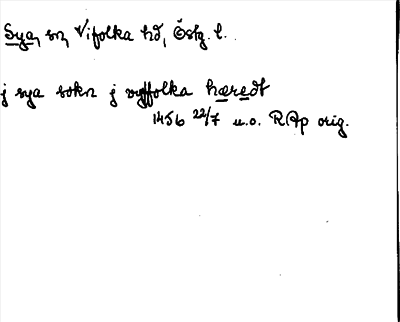 Sya, sn, Vifolka hd, Östg. l.
j sya sokn j vyffolka hæredt
1456 22/7 u.o. RAp orig.